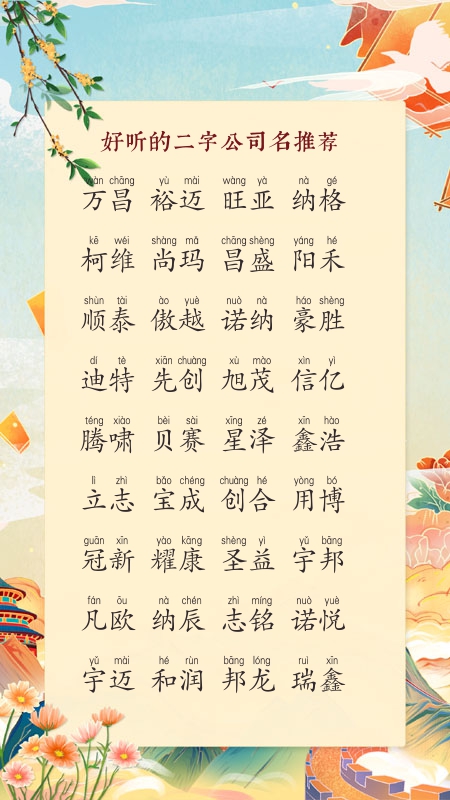 好听的二字公司名推荐
wàn chāng yù mài wàng yà nà gé
万昌 裕迈 旺亚 纳格
kē wéi shàng mǎ chāng shèng yáng hé
柯维 尚玛 昌盛 阳禾
shùn tài ào yuè nuò nà háo shèng
顺泰 傲越 诺纳 豪胜
dí tè xiān chuàng xù mào xìn yì
迪特 先创 旭茂 信亿
téng xiào bèi sài xīng zé xīn hào
腾啸 贝赛 星泽 鑫浩
lì zhì bǎo chéng chuàng hé yòng bó
立志 宝成 创合 用博
guān xīn yào kāng shèng yì yǔ bāng
冠新 耀康 圣益 宇邦
fán ōu nà chén zhì míng nuò yuè
凡欧 纳辰 志铭 诺悦
yǔ mài hé rùn bāng lóng ruì xīn
宇迈 和润 邦龙 瑞鑫